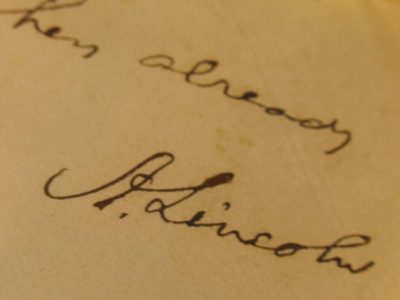 then already
A. Lincoln